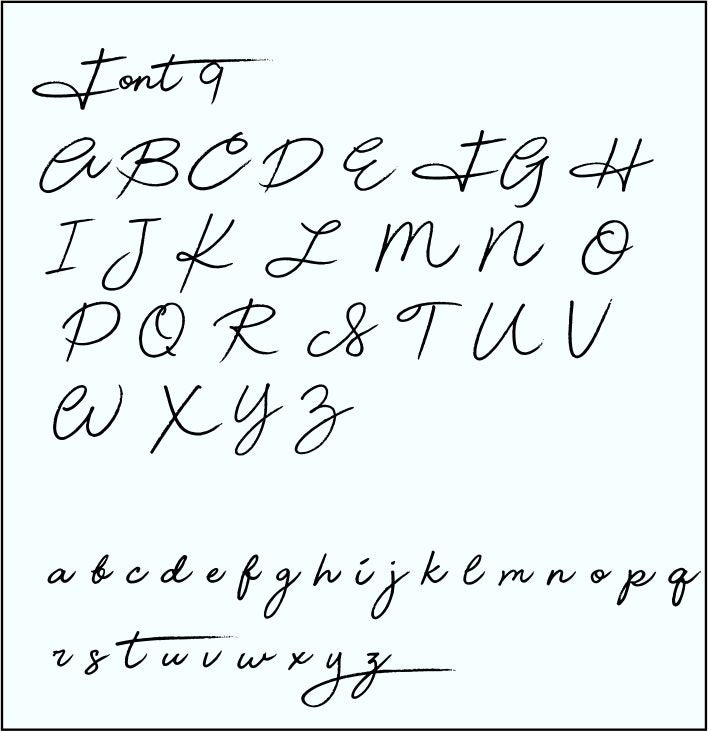 Font 9
A B C D E F G H
I J K L M N O
P Q R S T U V
W X Y Z
a b c d e f g h i j k l m n o p q
r s t u v w x y z